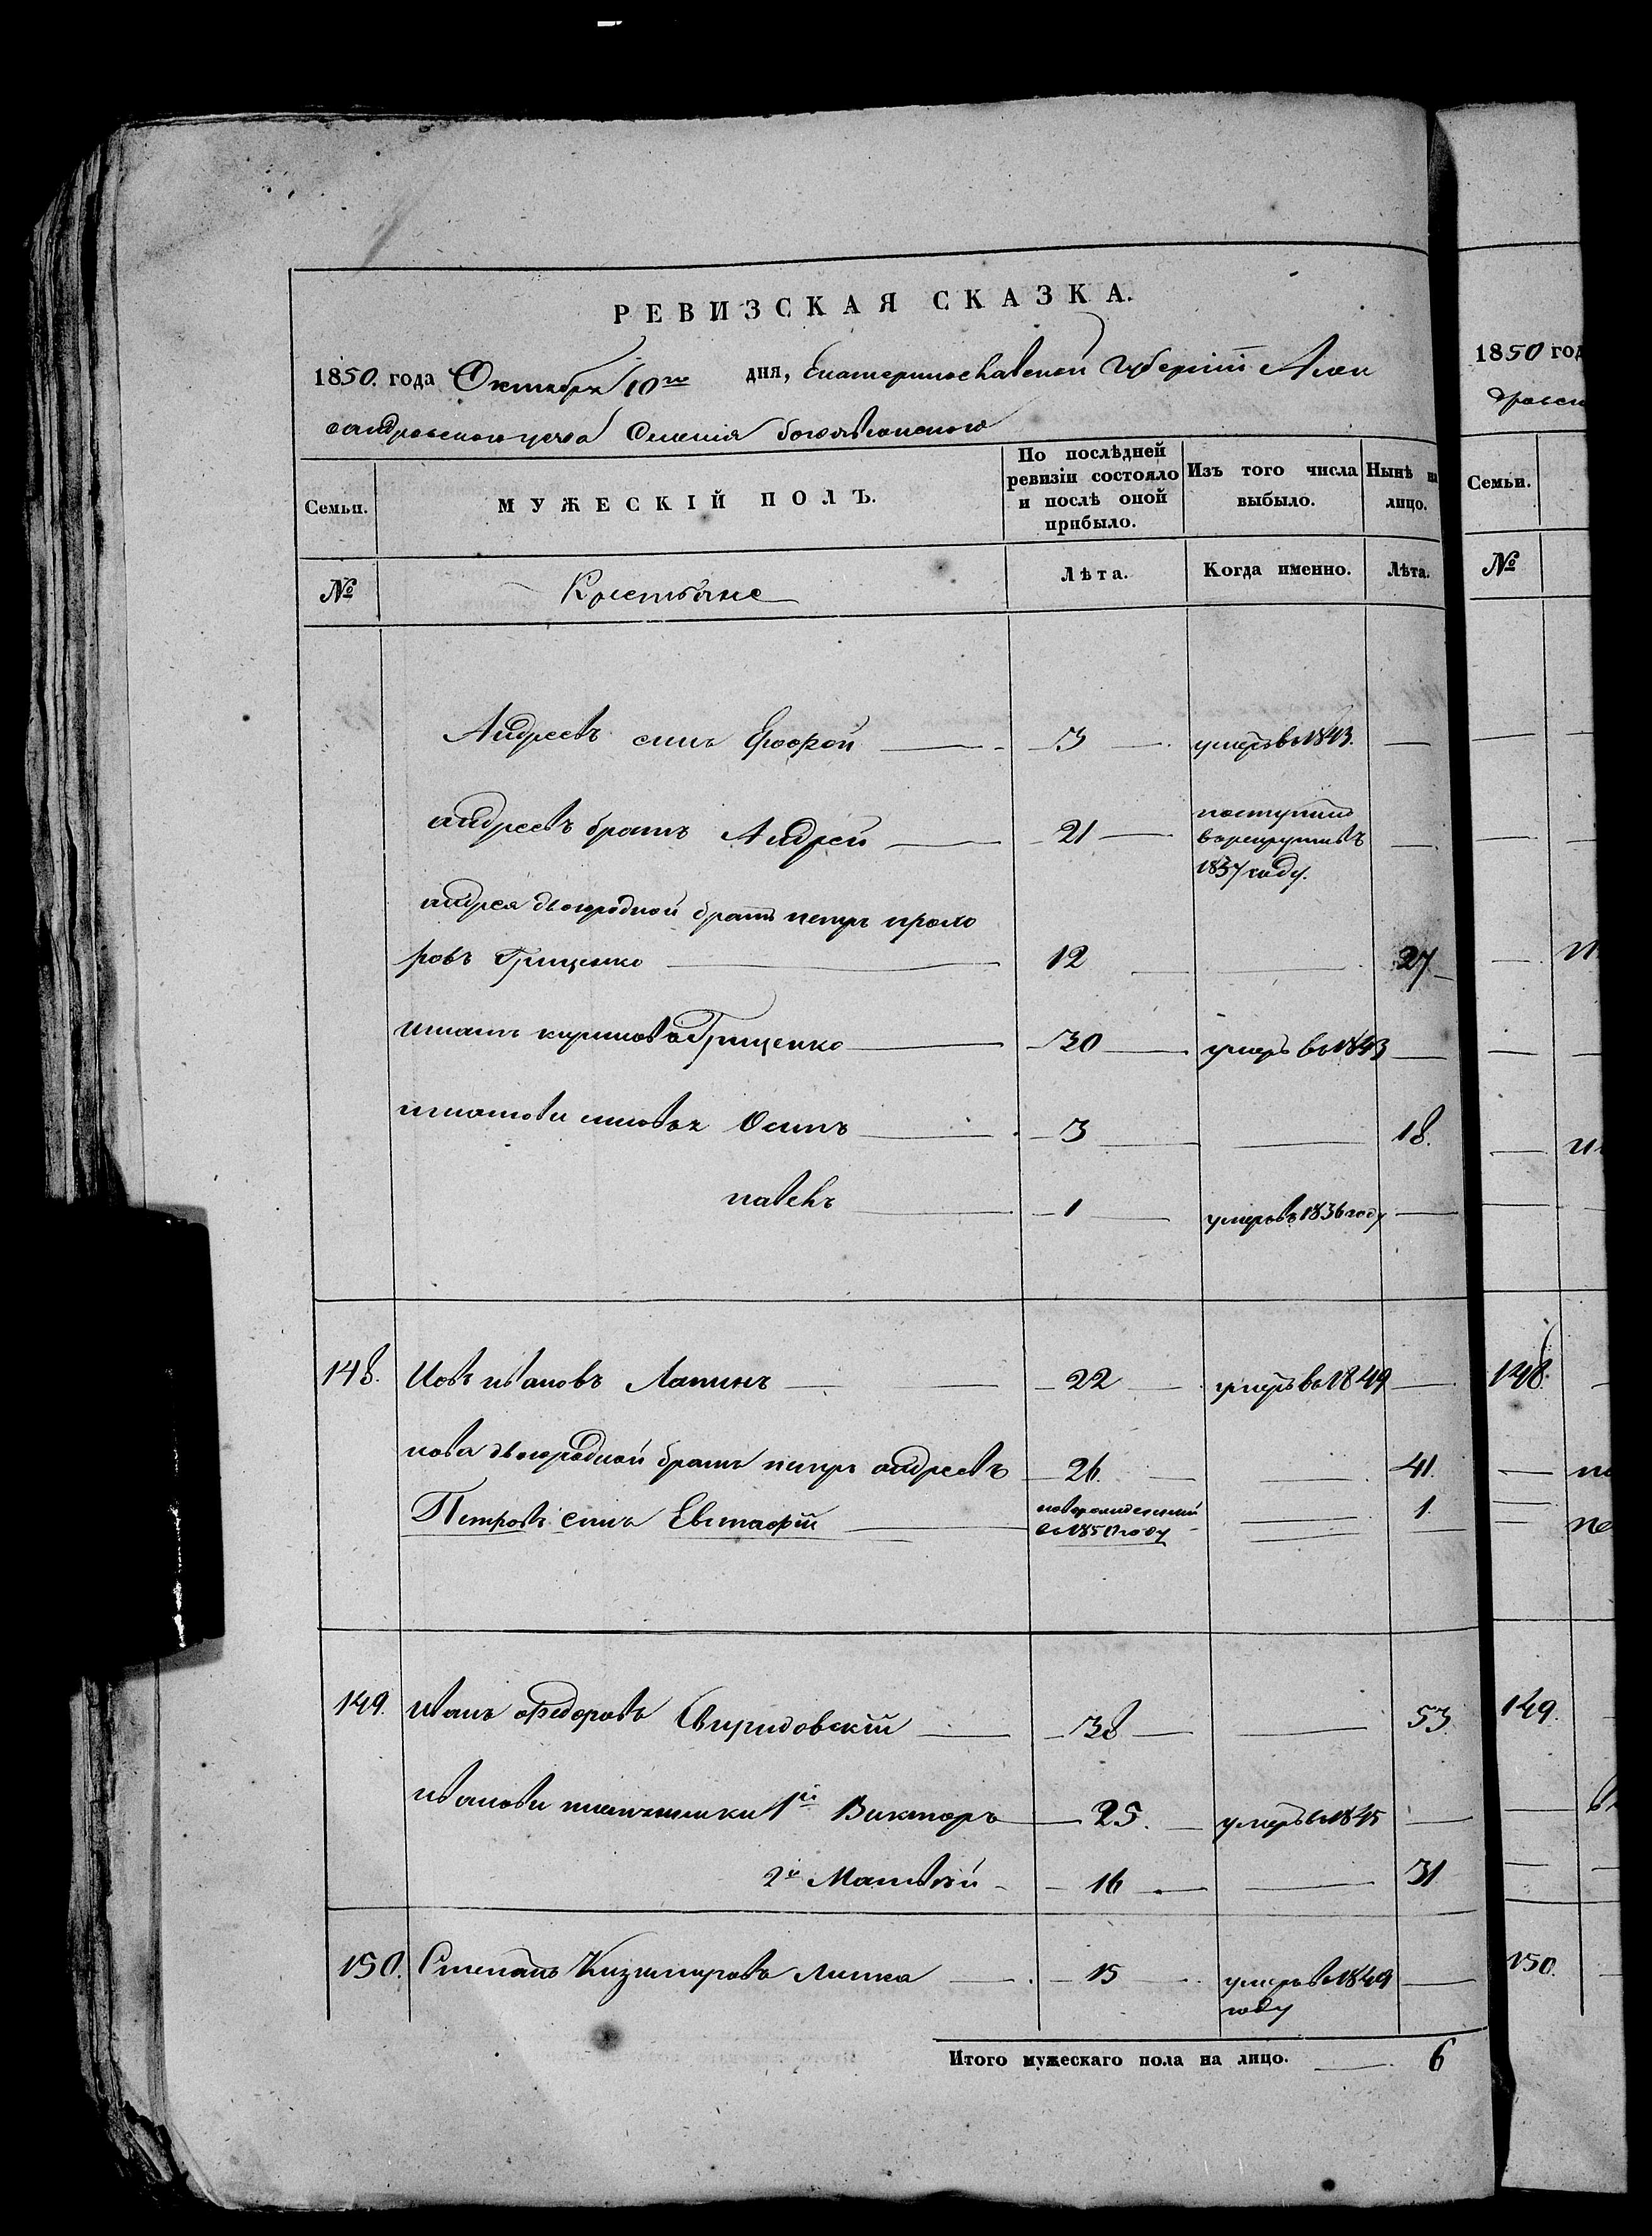 РЕВИЗСКАЯ СКАЗКА.
1850. года Октября 10го дня, Екатеринославской Губерніи Алек
сандровского уезда Селенія Богоявленского
Семьи. МУЖЕСКІЙ ПОЛЪ. По послѣдней ревизіи состояло и послѣ оной прибыло. Изъ того числа выбыло. Нынѣ на лицо.
№ Крестьяне Лѣта. Когда именно. Лѣта.
Андреевъ сынъ 3 умеръ в 1843.
андреевъ братъ Андрей 21 поступилъ в рекруты въ 1837 году.
андрея двоюродной братъ петръ прохо
ровъ Грищенко 12 27
игнатъ Грищенко 30 умеръ в 1843
игнатови сыновья Осипъ 3 18.
павелъ 1 умеръ въ 1836 году
148. Иовъ ивановъ Лапинъ 22 умеръ в 1849
иова двоюродной братъ петръ андреевъ 26. 41.
Петровъ сынъ Евстафій новорожденный в 1850 году 1.
149. иванъ Федоровъ Свиридовскій 38 53
иванови племянники 1й Викторъ 25. умеръ в 1845
2й Матвѣй 16 31
150. Степанъ Липка 15 умеръ в 1849 году
Итого мужескаго пола на лицо. 6
1850 год
Семьи.
№
148.
149.
150.